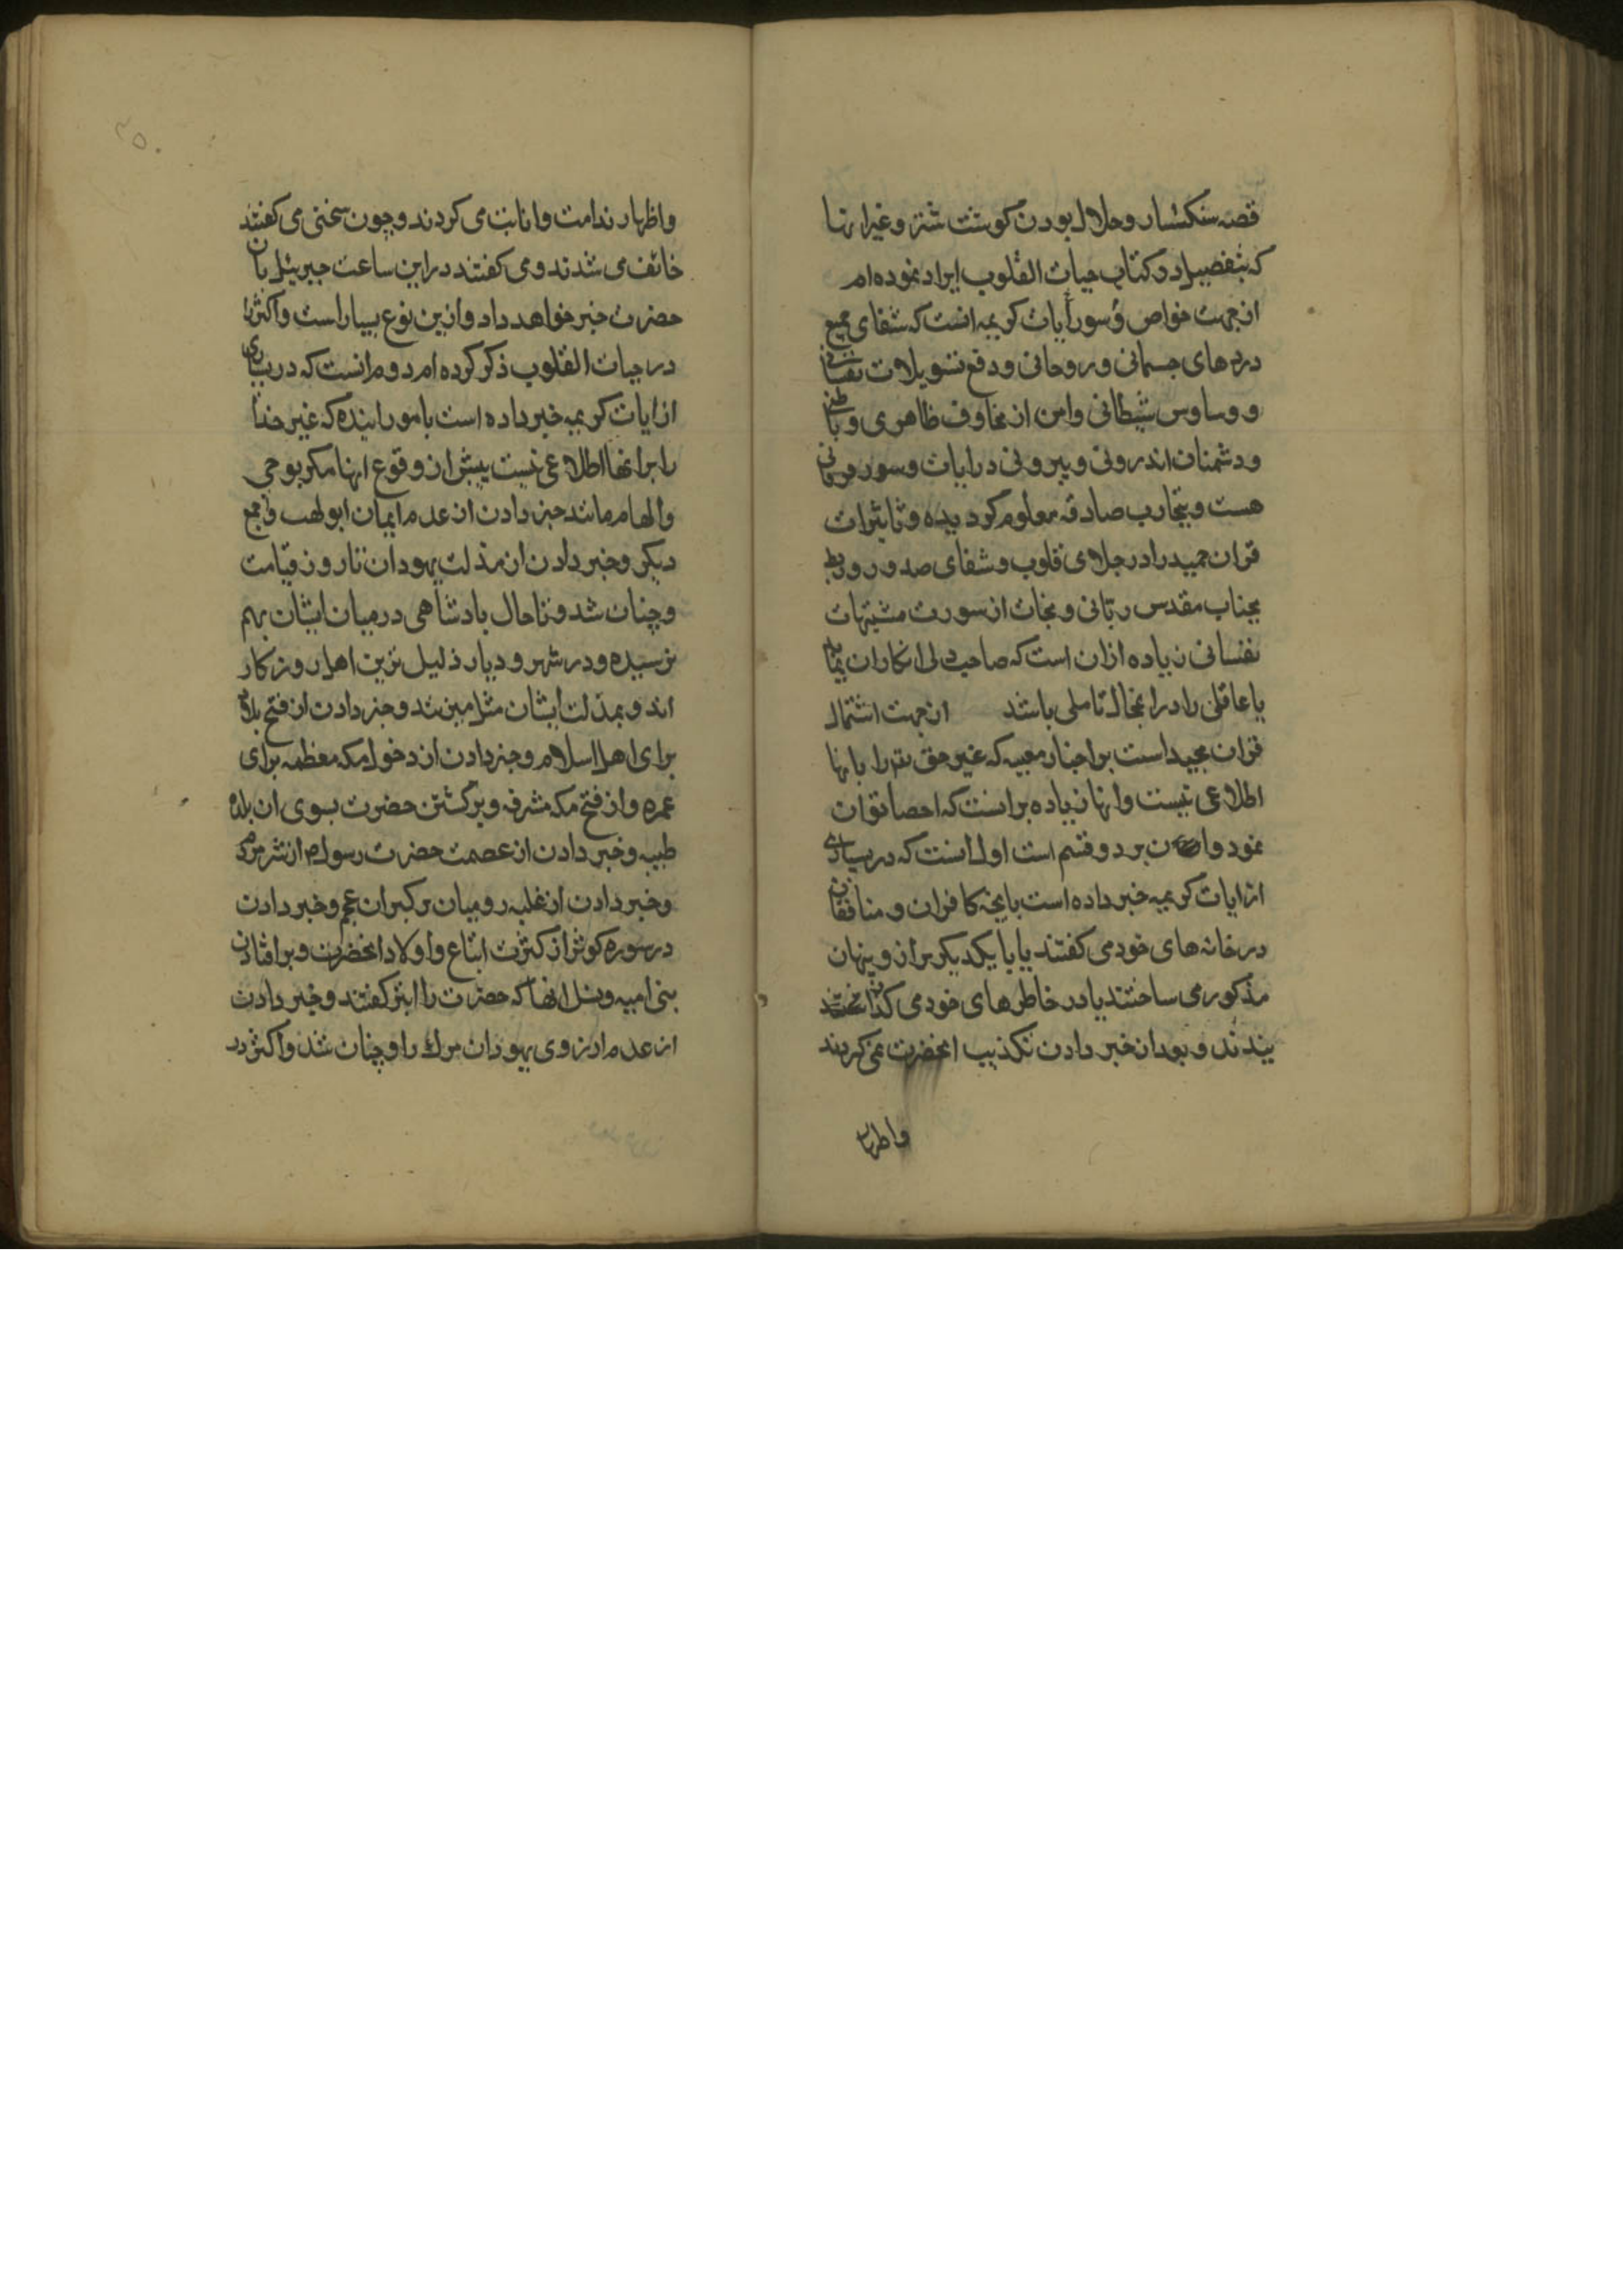 قصه سنکسار و حلال بودن کوشت شتر و غیر انها
که بتفصیل در کتاب حیات القلوب ایراد نموده ام
از جهت خواص و سور آیات کریمه انست که شفای جمیع
دردهای جسمانی و روحانی و دفع تسویلات نفسانی
و وساوس شیطانی و امن از مخاوف ظاهری و باطنی
و دشمنان اندرونی و بیرونی در ایات و سور فرقانی
هست و بتجارب صادقه معلوم کردیده و تاثیرات
قران مجید را در جلای قلوب و شفای صدور و ربط
بجناب مقدس ربانی و نجات از سورت مشتهیات
نفسانی زیاده ازان است که صاحب دلی انکار ان نماید
یا عاقلی را در انمحال تاملی باشد از جهت اشتمال
قران مجید است بر اخبار مغیبه که غیر حق تع را بانها
اطلاعی نیست و انها زیاده برانست که احصا توان
نمود و ان بر دو قسم است اول انست که در بسیاری
از ایات کریمه خبر داده است بانچه کافران و منافقان
در خانه های خود می کفتند یا با یکدیکر براز و پنهان
مذکور می ساختند یا در خاطرهای خود می کذرانیدند
و بعد از خبر دادن تکذیب انحضرت نمی کردند
واظهار
واظهار ندامت و انابت می کردند و چون سخنی می کفتند
خائف می شدند و می کفتند در این ساعت جبریئل بان
حضرت خبر خواهد داد و ازین نوع بسیار است و اکثر را
در حیات القلوب ذکر کرده ام دوم انست که در بسیاری
از ایات کریمه خبر داده است بامور اینده که غیر خدا
را بر انها اطلاعی نیست پیش از وقوع انها مکر بوحی
و الهام مانند خبر دادن از عدم ایمان ابو لهب و جمع
دیکر و خبر دادن از مذلت یهودان تا روز قیامت
و چنان شد و تا حال پادشاهی در میان ایشان بهم
نرسیده و در هر شهر و دیار ذلیل ترین اهل روزکار
اند و بمذلت ایشان مثل میزنند و خبر دادن از فتح بلاد
برای اهل اسلام و خبر دادن از دخول مکه معظمه برای
عمره و از فتح مکه مشرفه و برکشتن حضرت بسوی ان بلده
طیبه و خبر دادن از عصمت حضرت رسول ص از شر مردم
و خبر دادن از غلبه رومیان بر کبران عجم و خبر دادن
در سوره کوثر از کثرت اتباع و اولاد انحضرت و بر افتادن
بنی امیه و نسل انها که حضرت را ابتر کفتند و خبر دادن
از عدم ارزوی یهودان مرك را و چنان شد و اکثر در